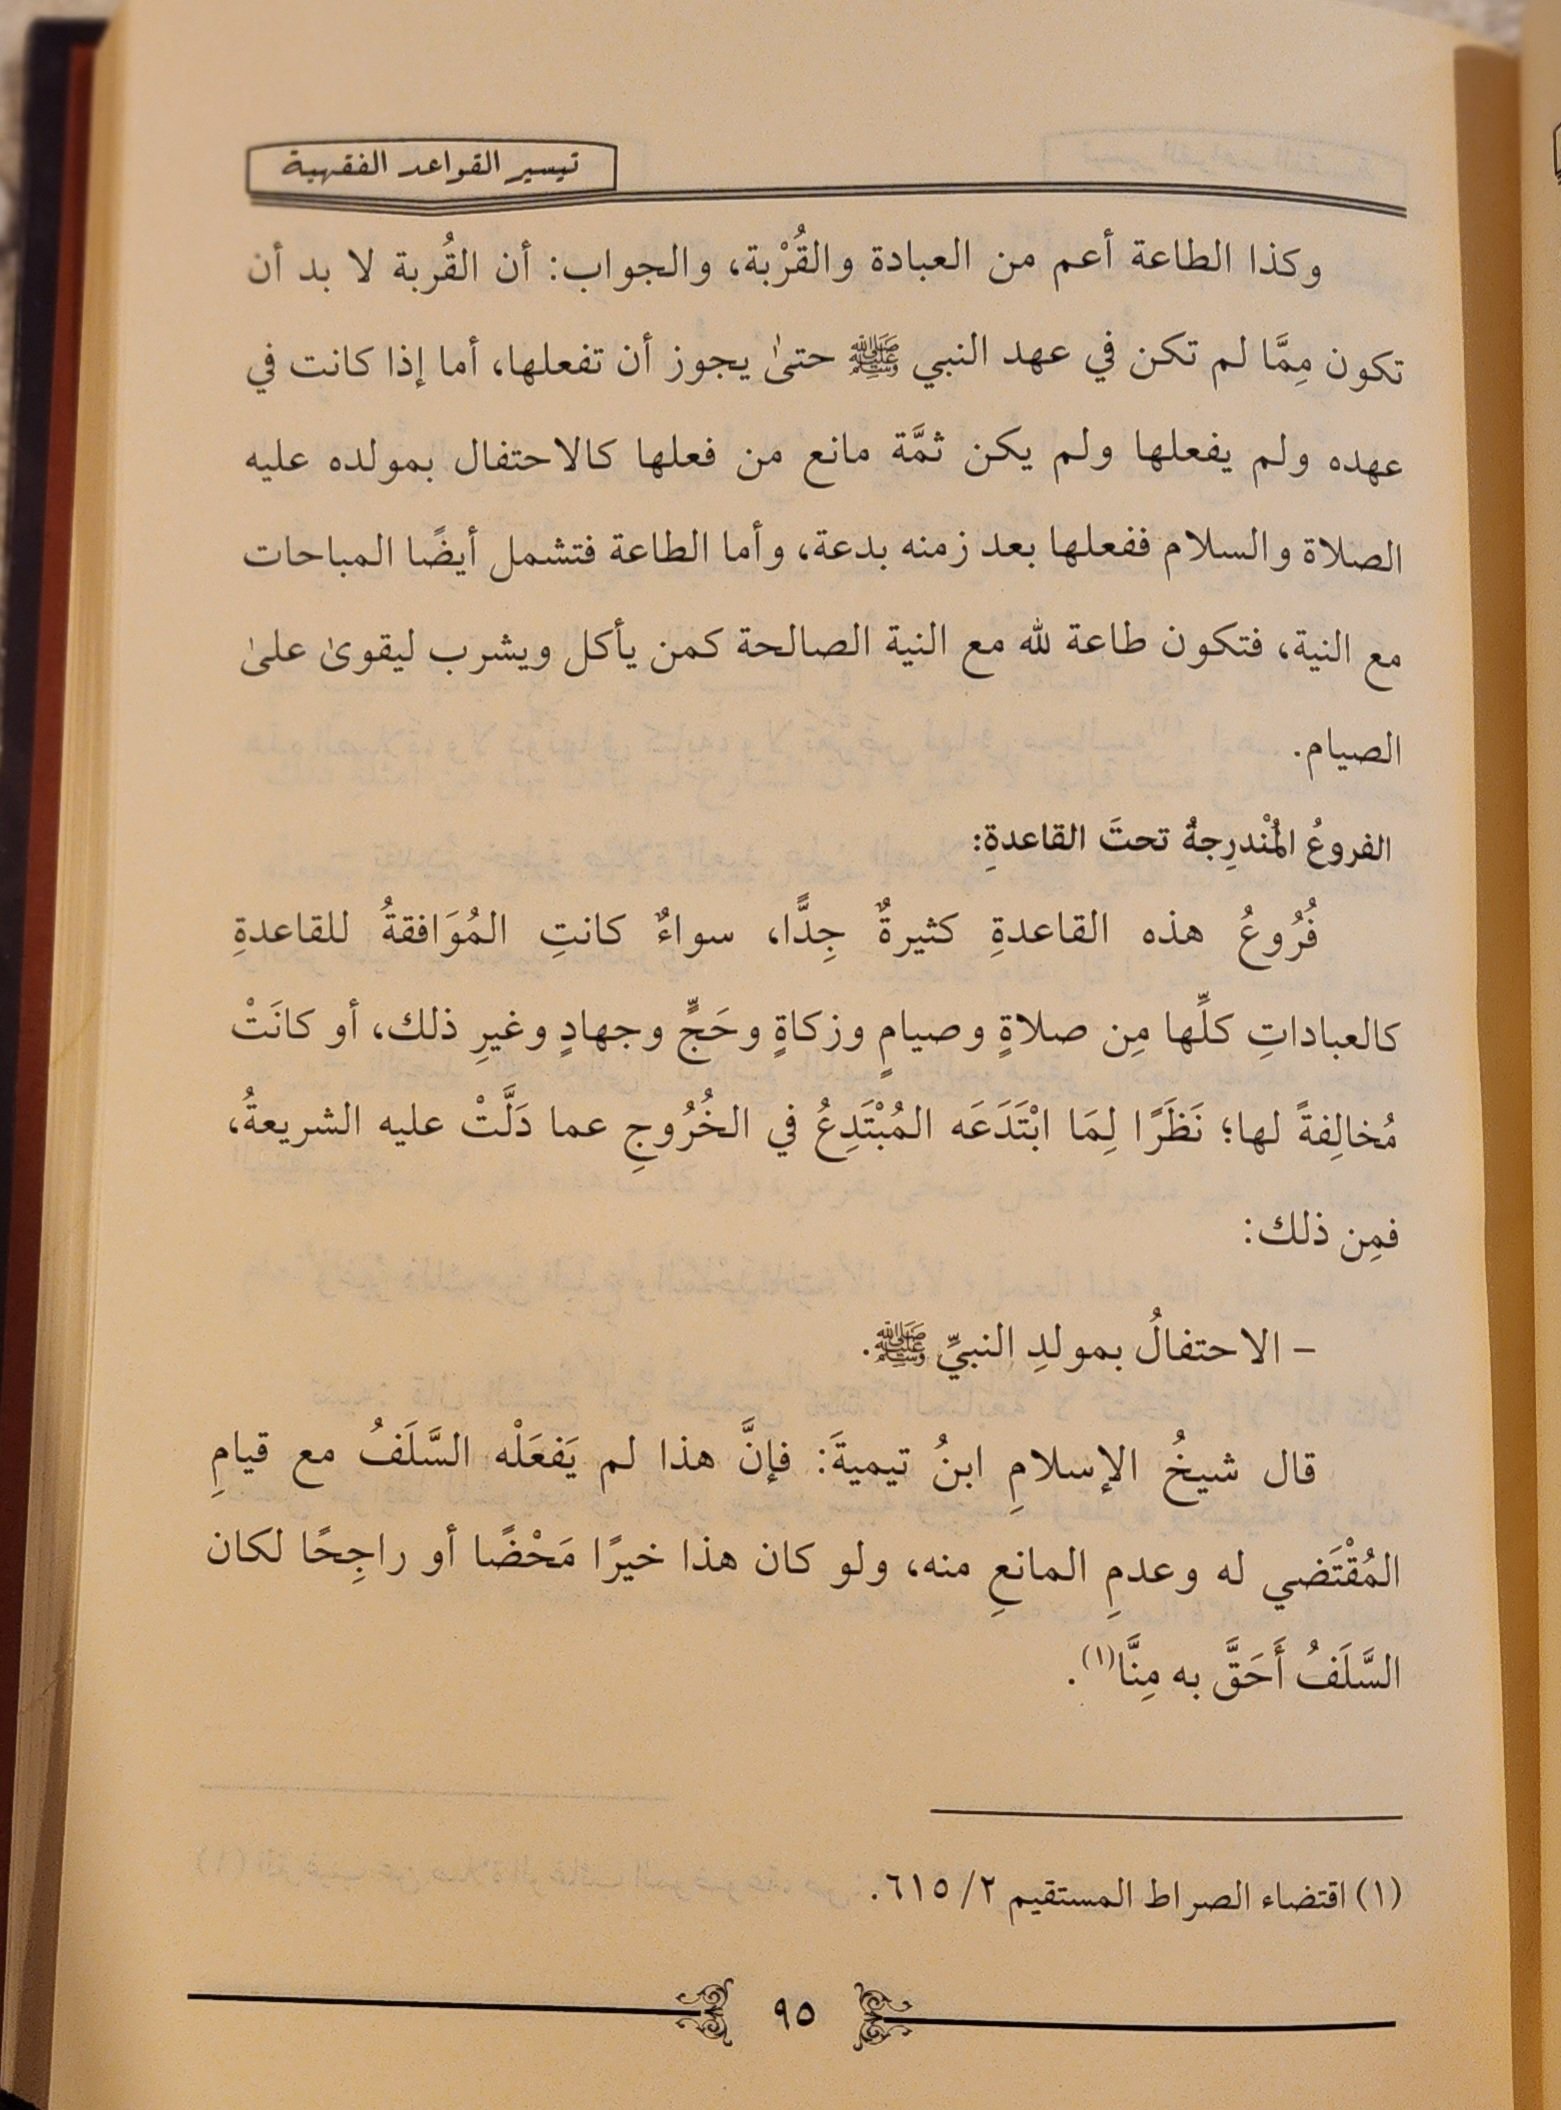 تيسير القواعد الفقهية
وكذا الطاعة أعم من العبادة والقُرْبة، والجواب: أن القُربة لا بد أن
تكون مِمَّا لم تكن في عهد النبي ﷺ حتىٰ يجوز أن تفعلها، أما إذا كانت في
عهده ولم يفعلها ولم يكن ثمَّة مانع من فعلها كالاحتفال بمولده عليه
الصلاة والسلام ففعلها بعد زمنه بدعة، وأما الطاعة فتشمل أيضًا المباحات
مع النية، فتكون طاعة لله مع النية الصالحة كمن يأكل ويشرب ليقوىٰ علىٰ
الصيام.
الفروعُ المُنْدرِجةُ تحتَ القاعدةِ:
فُرُوعُ هذه القاعدةِ كثيرةٌ جِدًّا، سواءٌ كانتِ المُوَافقةُ للقاعدةِ
كالعباداتِ كلِّها مِن صلاةٍ وصيامٍ وزكاةٍ وحَجٍّ وجهادٍ وغيرِ ذلك، أو كانَتْ
مُخالِفةً لها؛ نَظَرًا لِمَا ابْتَدَعَه المُبْتَدِعُ في الخُرُوجِ عما دَلَّتْ عليه الشريعةُ،
فمِن ذلك:
– الاحتفالُ بمولدِ النبيِّ ﷺ.
قال شيخُ الإسلامِ ابنُ تيميةَ: فإنَّ هذا لم يَفعَلْه السَّلَفُ مع قيامِ
المُقْتَضي له وعدمِ المانعِ منه، ولو كان هذا خيرًا مَحْضًا أو راجِحًا لكان
السَّلَفُ أَحَقَّ به مِنَّا(١).
(١) اقتضاء الصراط المستقيم ٢/ ٦١٥.
٩٥